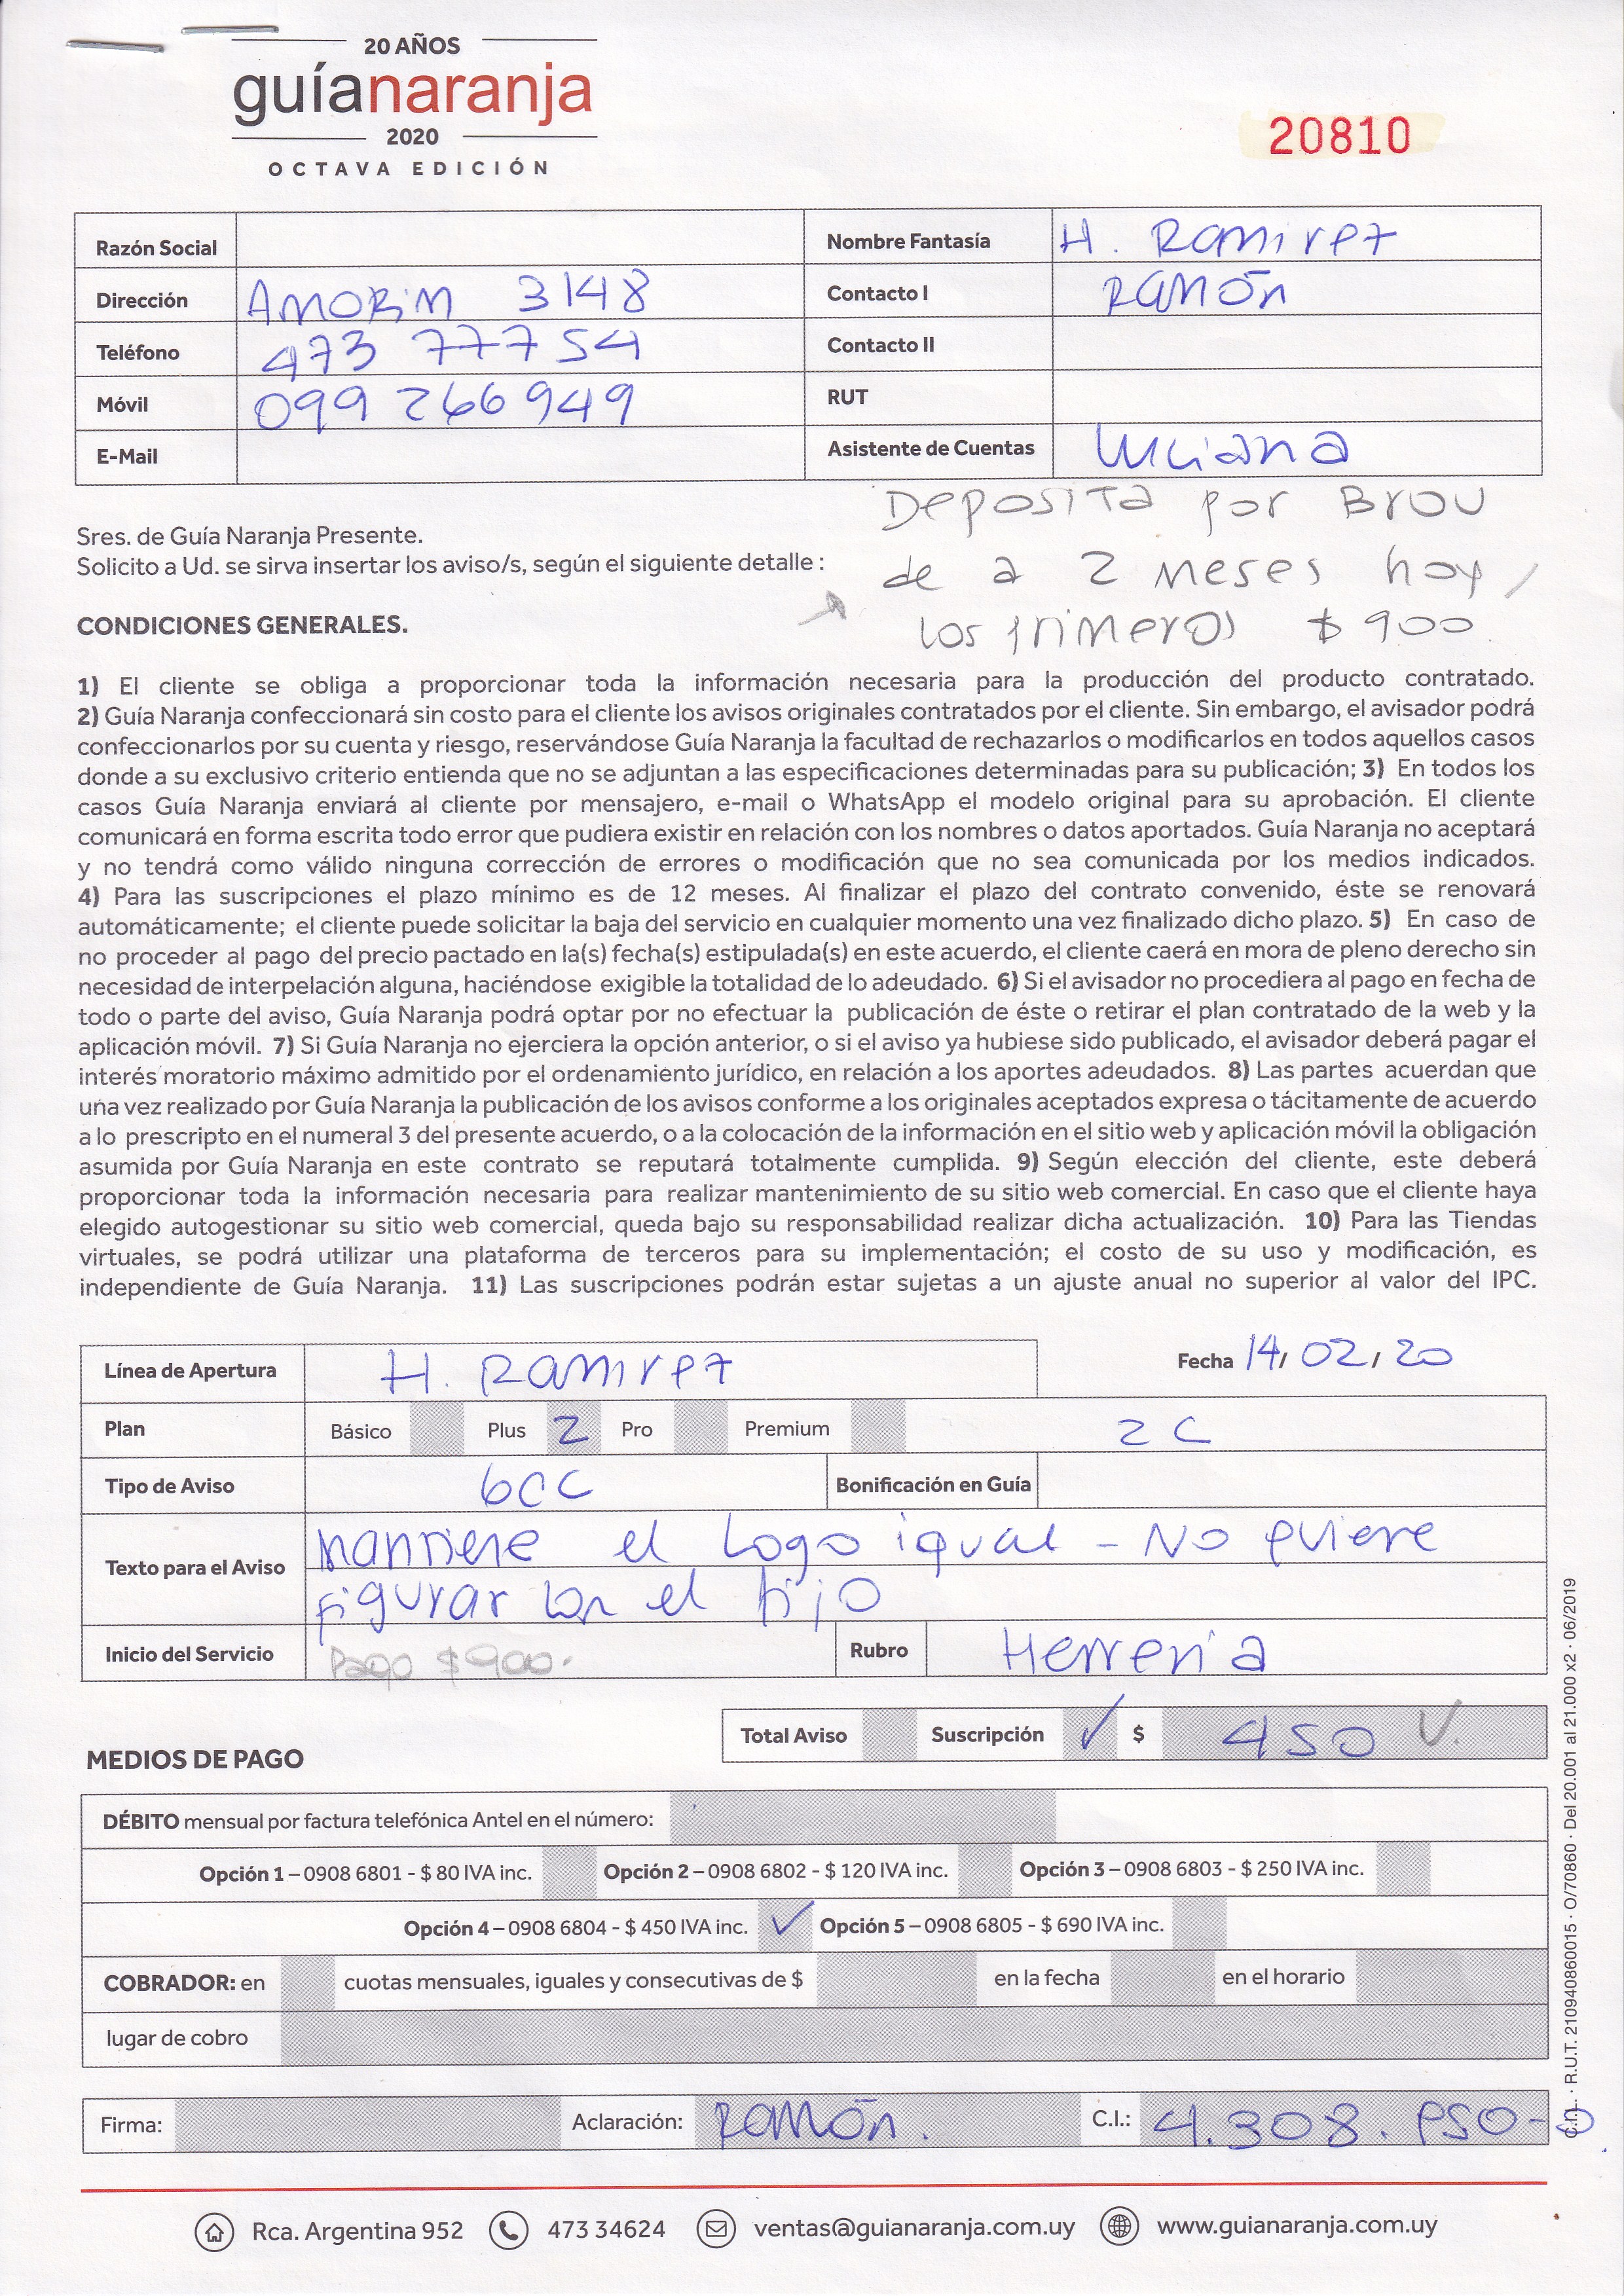 20 AÑOS
guíanaranja
2020
OCTAVA EDICIÓN
20810
Razón Social
Nombre Fantasía H. Ramirez
Dirección AMORiM 3148
Contacto I RAMÓn
Teléfono 473 77754
Contacto II
Móvil 099 266 949
RUT
E-Mail
Asistente de Cuentas Luciana
Deposita por Brou
de a 2 meses hoy,
los primeros $ 900
Sres. de Guía Naranja Presente.
Solicito a Ud. se sirva insertar los aviso/s, según el siguiente detalle :
CONDICIONES GENERALES.
1) El cliente se obliga a proporcionar toda la información necesaria para la producción del producto contratado.
2) Guía Naranja confeccionará sin costo para el cliente los avisos originales contratados por el cliente. Sin embargo, el avisador podrá
confeccionarlos por su cuenta y riesgo, reservándose Guía Naranja la facultad de rechazarlos o modificarlos en todos aquellos casos
donde a su exclusivo criterio entienda que no se adjuntan a las especificaciones determinadas para su publicación; 3) En todos los
casos Guía Naranja enviará al cliente por mensajero, e-mail o WhatsApp el modelo original para su aprobación. El cliente
comunicará en forma escrita todo error que pudiera existir en relación con los nombres o datos aportados. Guía Naranja no aceptará
y no tendrá como válido ninguna corrección de errores o modificación que no sea comunicada por los medios indicados.
4) Para las suscripciones el plazo mínimo es de 12 meses. Al finalizar el plazo del contrato convenido, éste se renovará
automáticamente; el cliente puede solicitar la baja del servicio en cualquier momento una vez finalizado dicho plazo. 5) En caso de
no proceder al pago del precio pactado en la(s) fecha(s) estipulada(s) en este acuerdo, el cliente caerá en mora de pleno derecho sin
necesidad de interpelación alguna, haciéndose exigible la totalidad de lo adeudado. 6) Si el avisador no procediera al pago en fecha de
todo o parte del aviso, Guía Naranja podrá optar por no efectuar la publicación de éste o retirar el plan contratado de la web y la
aplicación móvil. 7) Si Guía Naranja no ejerciera la opción anterior, o si el aviso ya hubiese sido publicado, el avisador deberá pagar el
interés moratorio máximo admitido por el ordenamiento jurídico, en relación a los aportes adeudados. 8) Las partes acuerdan que
una vez realizado por Guía Naranja la publicación de los avisos conforme a los originales aceptados expresa o tácitamente de acuerdo
a lo prescripto en el numeral 3 del presente acuerdo, o a la colocación de la información en el sitio web y aplicación móvil la obligación
asumida por Guía Naranja en este contrato se reputará totalmente cumplida. 9) Según elección del cliente, este deberá
proporcionar toda la información necesaria para realizar mantenimiento de su sitio web comercial. En caso que el cliente haya
elegido autogestionar su sitio web comercial, queda bajo su responsabilidad realizar dicha actualización. 10) Para las Tiendas
virtuales, se podrá utilizar una plataforma de terceros para su implementación; el costo de su uso y modificación, es
independiente de Guía Naranja. 11) Las suscripciones podrán estar sujetas a un ajuste anual no superior al valor del IPC.
Línea de Apertura H. Ramirez
Fecha 14/ 02/ 20
Plan Básico Plus 2 Pro Premium 2 C
Tipo de Aviso 6CC Bonificación en Guía
Texto para el Aviso
Mantiene el Logo igual - No quiere
figurar con el fijo
Inicio del Servicio Pago $900. Rubro Herreria
Total Aviso Suscripción ✓ $ 450 ✓.
MEDIOS DE PAGO
DÉBITO mensual por factura telefónica Antel en el número:
Opción 1 – 0908 6801 - $ 80 IVA inc. Opción 2 – 0908 6802 - $ 120 IVA inc. Opción 3 – 0908 6803 - $ 250 IVA inc.
Opción 4 – 0908 6804 - $ 450 IVA inc. ✓ Opción 5 – 0908 6805 - $ 690 IVA inc.
COBRADOR: en cuotas mensuales, iguales y consecutivas de $ en la fecha en el horario
lugar de cobro
Firma: Aclaración: RAMÓn. C.I.: 4.308.
R.U.T. 210940860015 · O/70860 · Del 20.001 al 21.000 x2 · 06/2019
Rca. Argentina 952 473 34624 ventas@guianaranja.com.uy www.guianaranja.com.uy